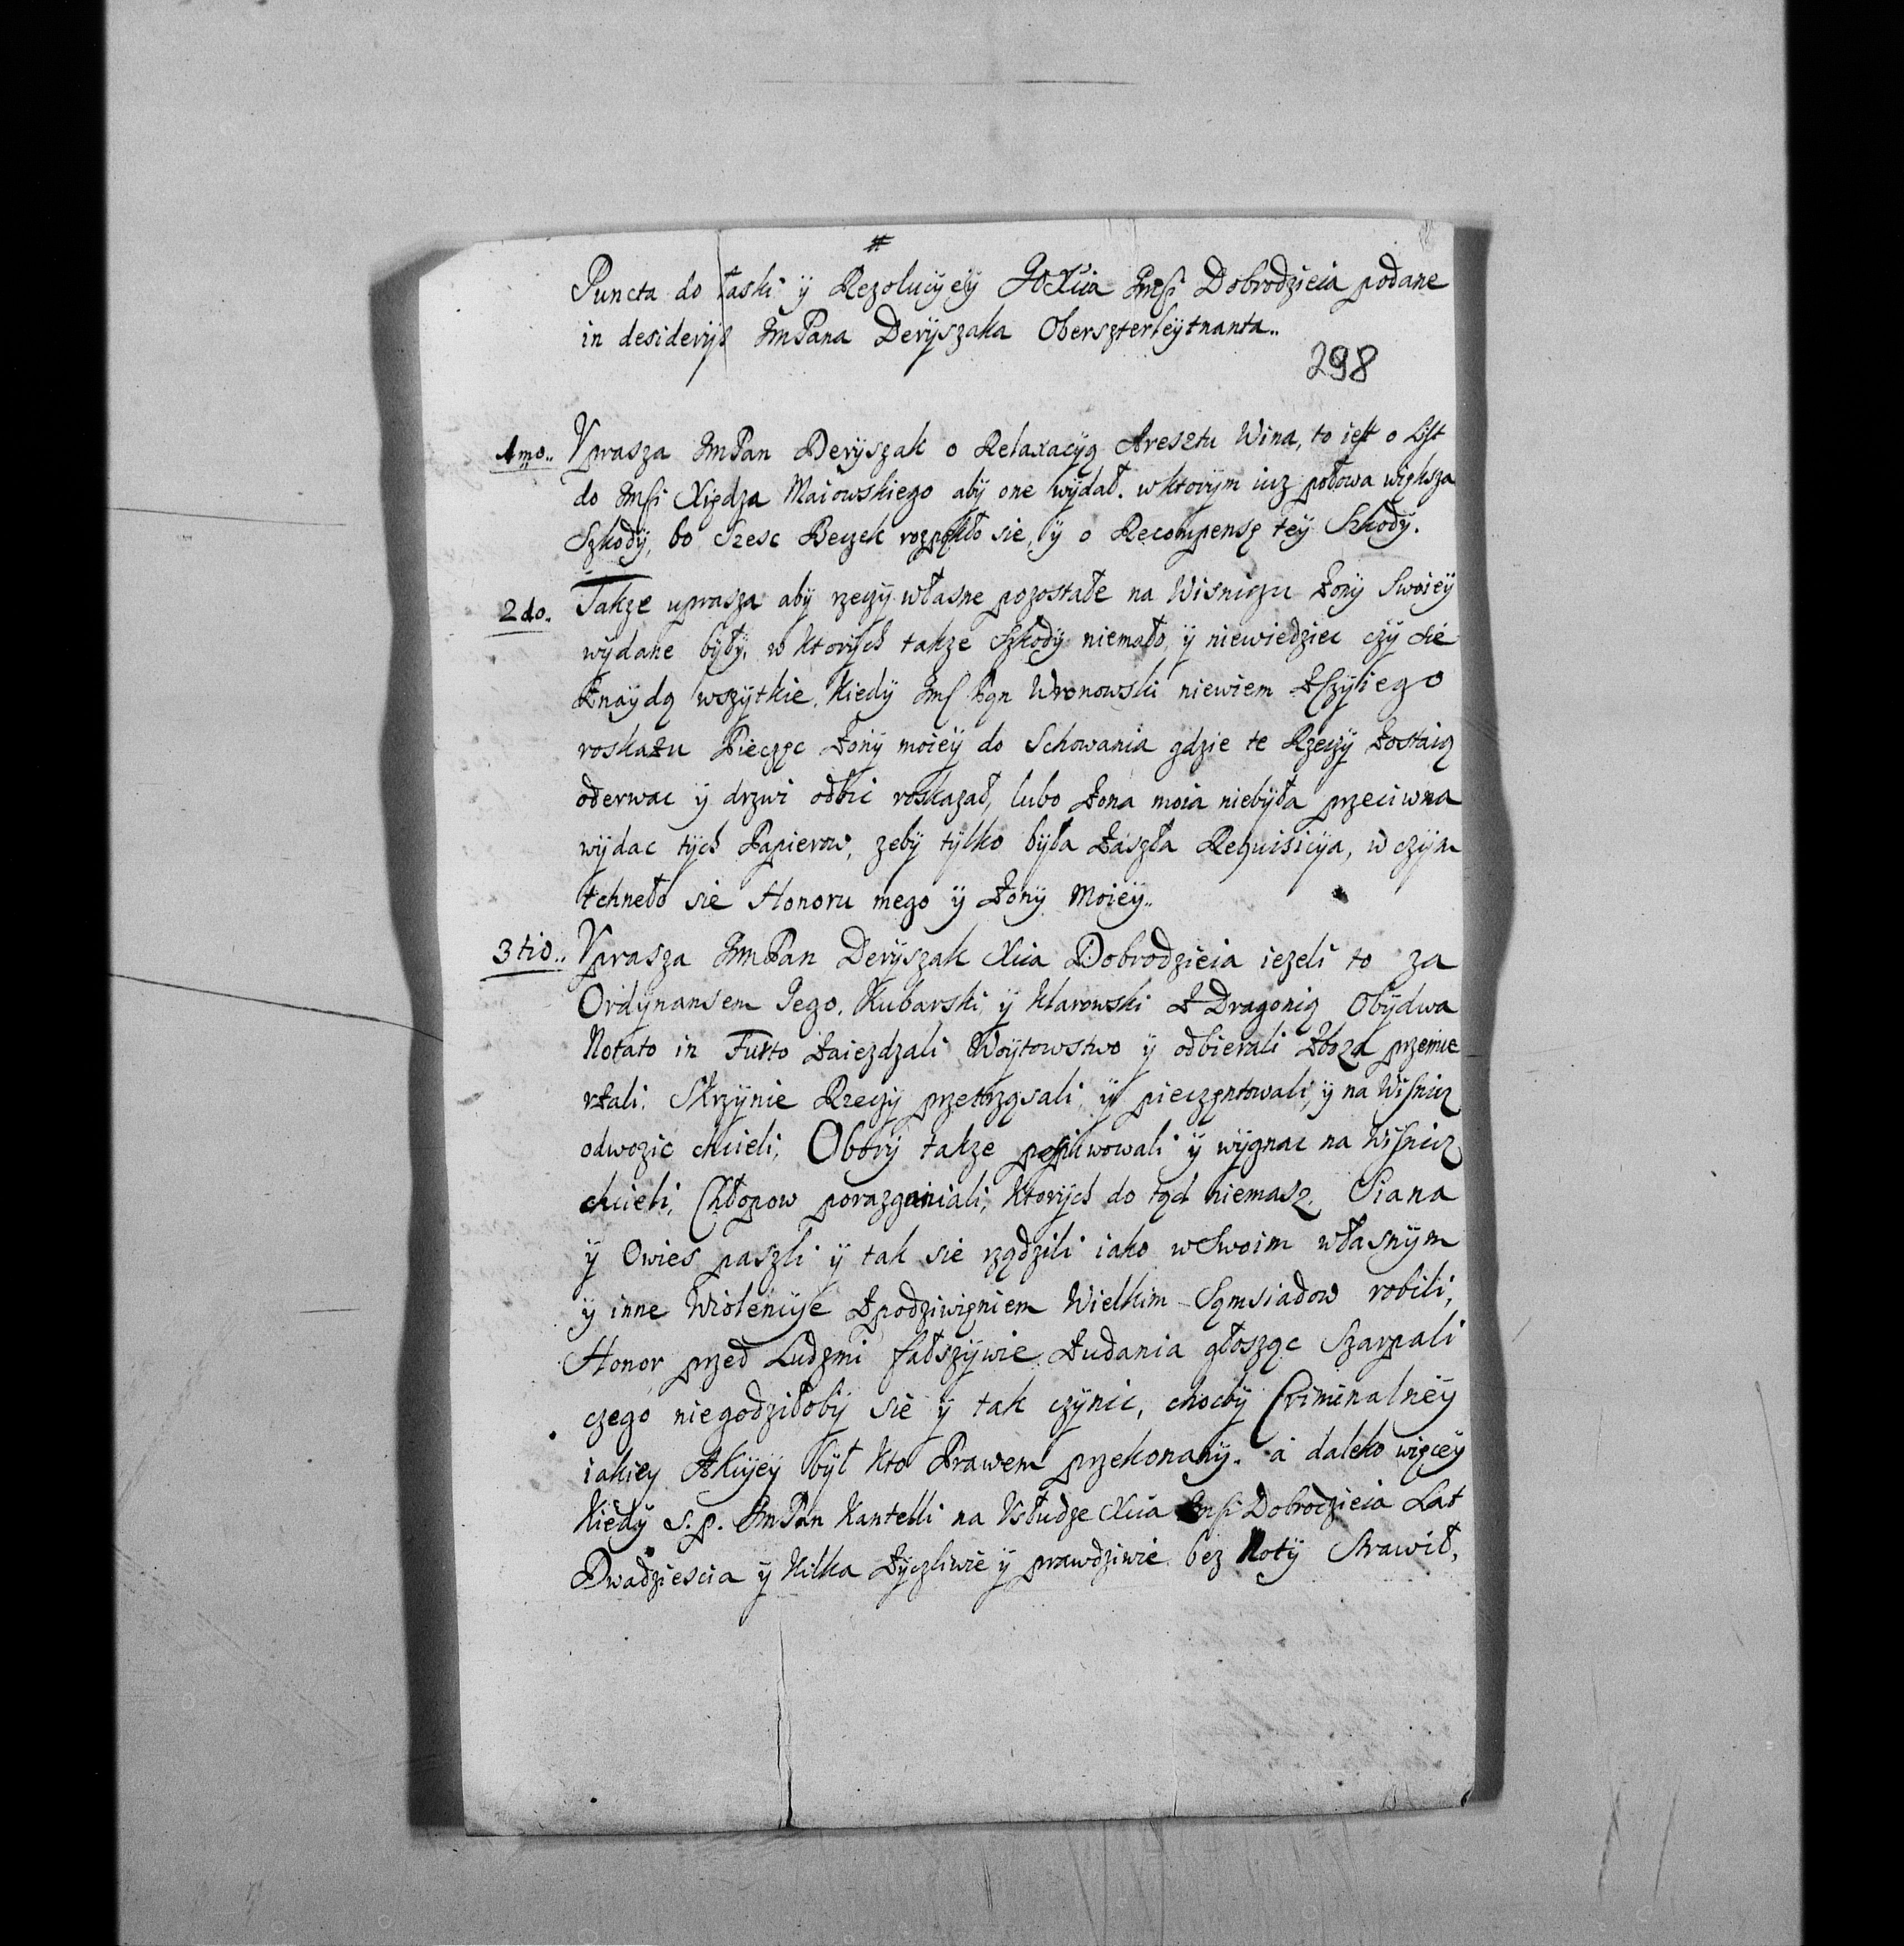 #
Puncta do łaski ÿ Rezolucÿeÿ JoXcia Jmści Dobrodzieia podane
in desiderÿs JmPana Derÿszaka Oberszterleÿtnanta..
298
1mo.. Vprasza JmPan Derÿszak o Relaxacÿą Aresztu Wina, to iest o List
do Jmści Xiędza Maiowskiego abÿ one wÿdał. w ktorÿm iuz połowa większa
Szkodÿ, bo Szesc Beczek rozpękło sie, ÿ o Recompensę teÿ Szkodÿ.
2do. Takze uprasza abÿ rzeczÿ własne pozostałe na Wisniczu Zonÿ Swoieÿ
wÿdane bÿłÿ, w ktorÿch takze Szkodÿ niemało, ÿ niewiedziec czÿ sie
Znaÿdą wszÿtkie, kiedÿ Jmść Pan Wronowski niewiem Zczÿiego
roskazu Pieczęc Zonÿ moieÿ do Schowania gdzie te Rzeczÿ Zostaią
oderwac ÿ drzwi odbic roskazał, lubo Zona moia niebÿła przeciwna
wÿdac tÿch Papierow, zebÿ tÿlko bÿła Zaszła Requisicÿa, w czÿm
tchneło sie Honoru mego ÿ Zonÿ Moieÿ..
3tio.. Vprasza JmPan Derÿszak Xcia Dobrodzieia iezeli to za
Ordÿnansem Jego, Kubarski ÿ Klarowski Z Dragonią Obÿdwa
Notato in Furto Zaiezdzali Woÿtowstwo ÿ odbierali Zboza przemie
rzali, Skrzÿnie Rzeczÿ przetrząsali ÿ pieczętowali, ÿ na Wisnicz
odwozic chcieli, Oborÿ takze ÿ wÿgnac na Wisnicz
chcieli, Chłopow porazganiali, ktorÿch do tąd niemasz, Siana
ÿ Owies paszli ÿ tak sie rządzili iako wSwoim własnÿm
ÿ inne Wiolencÿe Zpodziwięniem Wielkim Sąmsiadow robili,
Honor przed Ludzmi fałszÿwie Zudania głosząc Szarpali
czego niegodziłobÿ sie ÿ tak czÿnic, chocbÿ Criminalneÿ
iakieÿ Akcÿeÿ bÿł kto Prawem przekonanÿ. a daleko więceÿ
kiedÿ s. p. JmPan Kantelli na Vsłudze Xcia Jmści Dobrodzieia Lat
Dwadziescia ÿ kilka Zÿczliwie ÿ prawdziwie bez Notÿ Strawił,